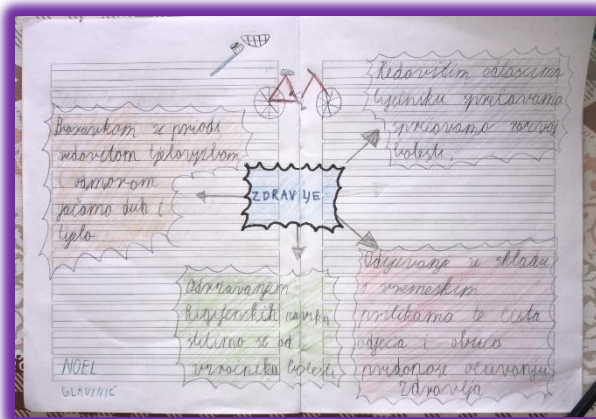 Redovitim odlascima
liječniku sprečavamo
sprečavamo razvoj
bolesti.
Boravkom u prirodi
redovitom tjelovježbom
i odmorom
jačamo duh i
tijelo
ZDRAVLJE
Održavanjem
higijenskih navika
štitimo se od
uzročnika bolesti
Odijevanje u skladu
s vremeskim
prilikama te čista
odjeća i obuća
pridonose očuvanju
zdravlja
NOEL
GLAVINIĆ